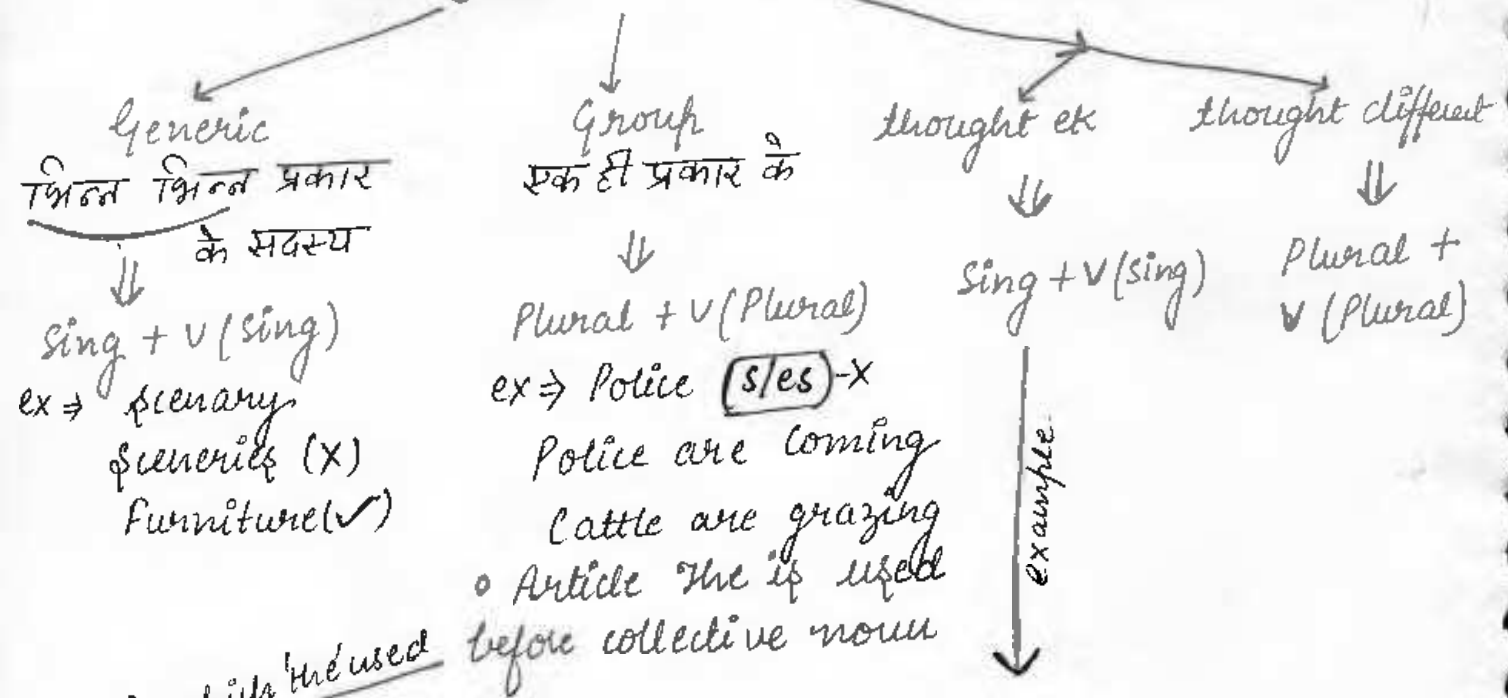 Generic
भिन्न भिन्न प्रकार
के सदस्य
⇓
Sing + V (Sing)
ex ⇒ Scenary
Sceneries (X)
Furniture (✓)
Group
एक ही प्रकार के
⇓
Plural + V (Plural)
ex ⇒ Police (s/es) -X
Police are coming
Cattle are grazing
• Article The is used
before collective noun
thought ek
⇓
Sing + V (Sing)
example
thought different
⇓
Plural +
V (Plural)
'the' used